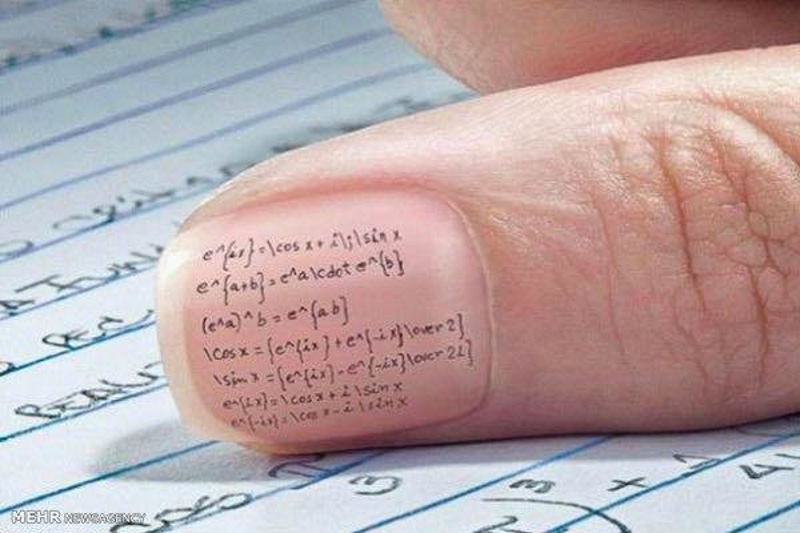 e^{ix}=\cos x + i\;\sin x
e^{a+b}=e^a\cdot e^{b}
(e^a)^b = e^{ab}
\cos x = {e^{ix} + e^{-ix}\over 2}
\sin x = {e^{ix} - e^{-ix}\over 2i}
e^{ix}=\cos x + i \sin x
e^{-ix}=\cos x - i \sin x
3
3 + 1
MEHR NEWSAGENCY